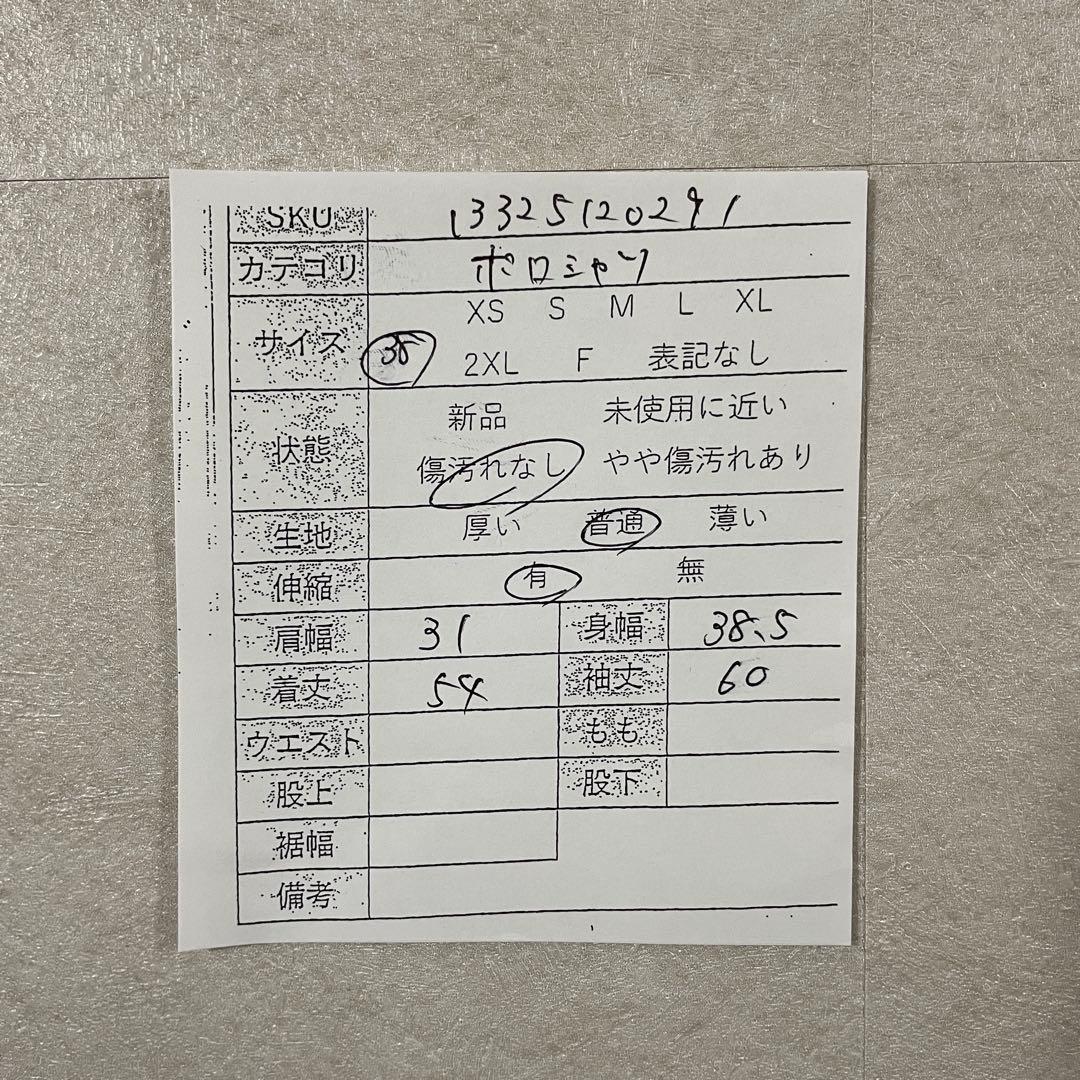 SKU 13325120291
カテゴリ ポロシャツ
XS S M L XL
サイズ 38 2XL F 表記なし
新品 未使用に近い
状態 傷汚れなし やや傷汚れあり
生地 厚い 普通 薄い
伸縮 有 無
肩幅 31 身幅 38.5
着丈 54 袖丈 60
ウエスト もも
股上 股下
裾幅
備考